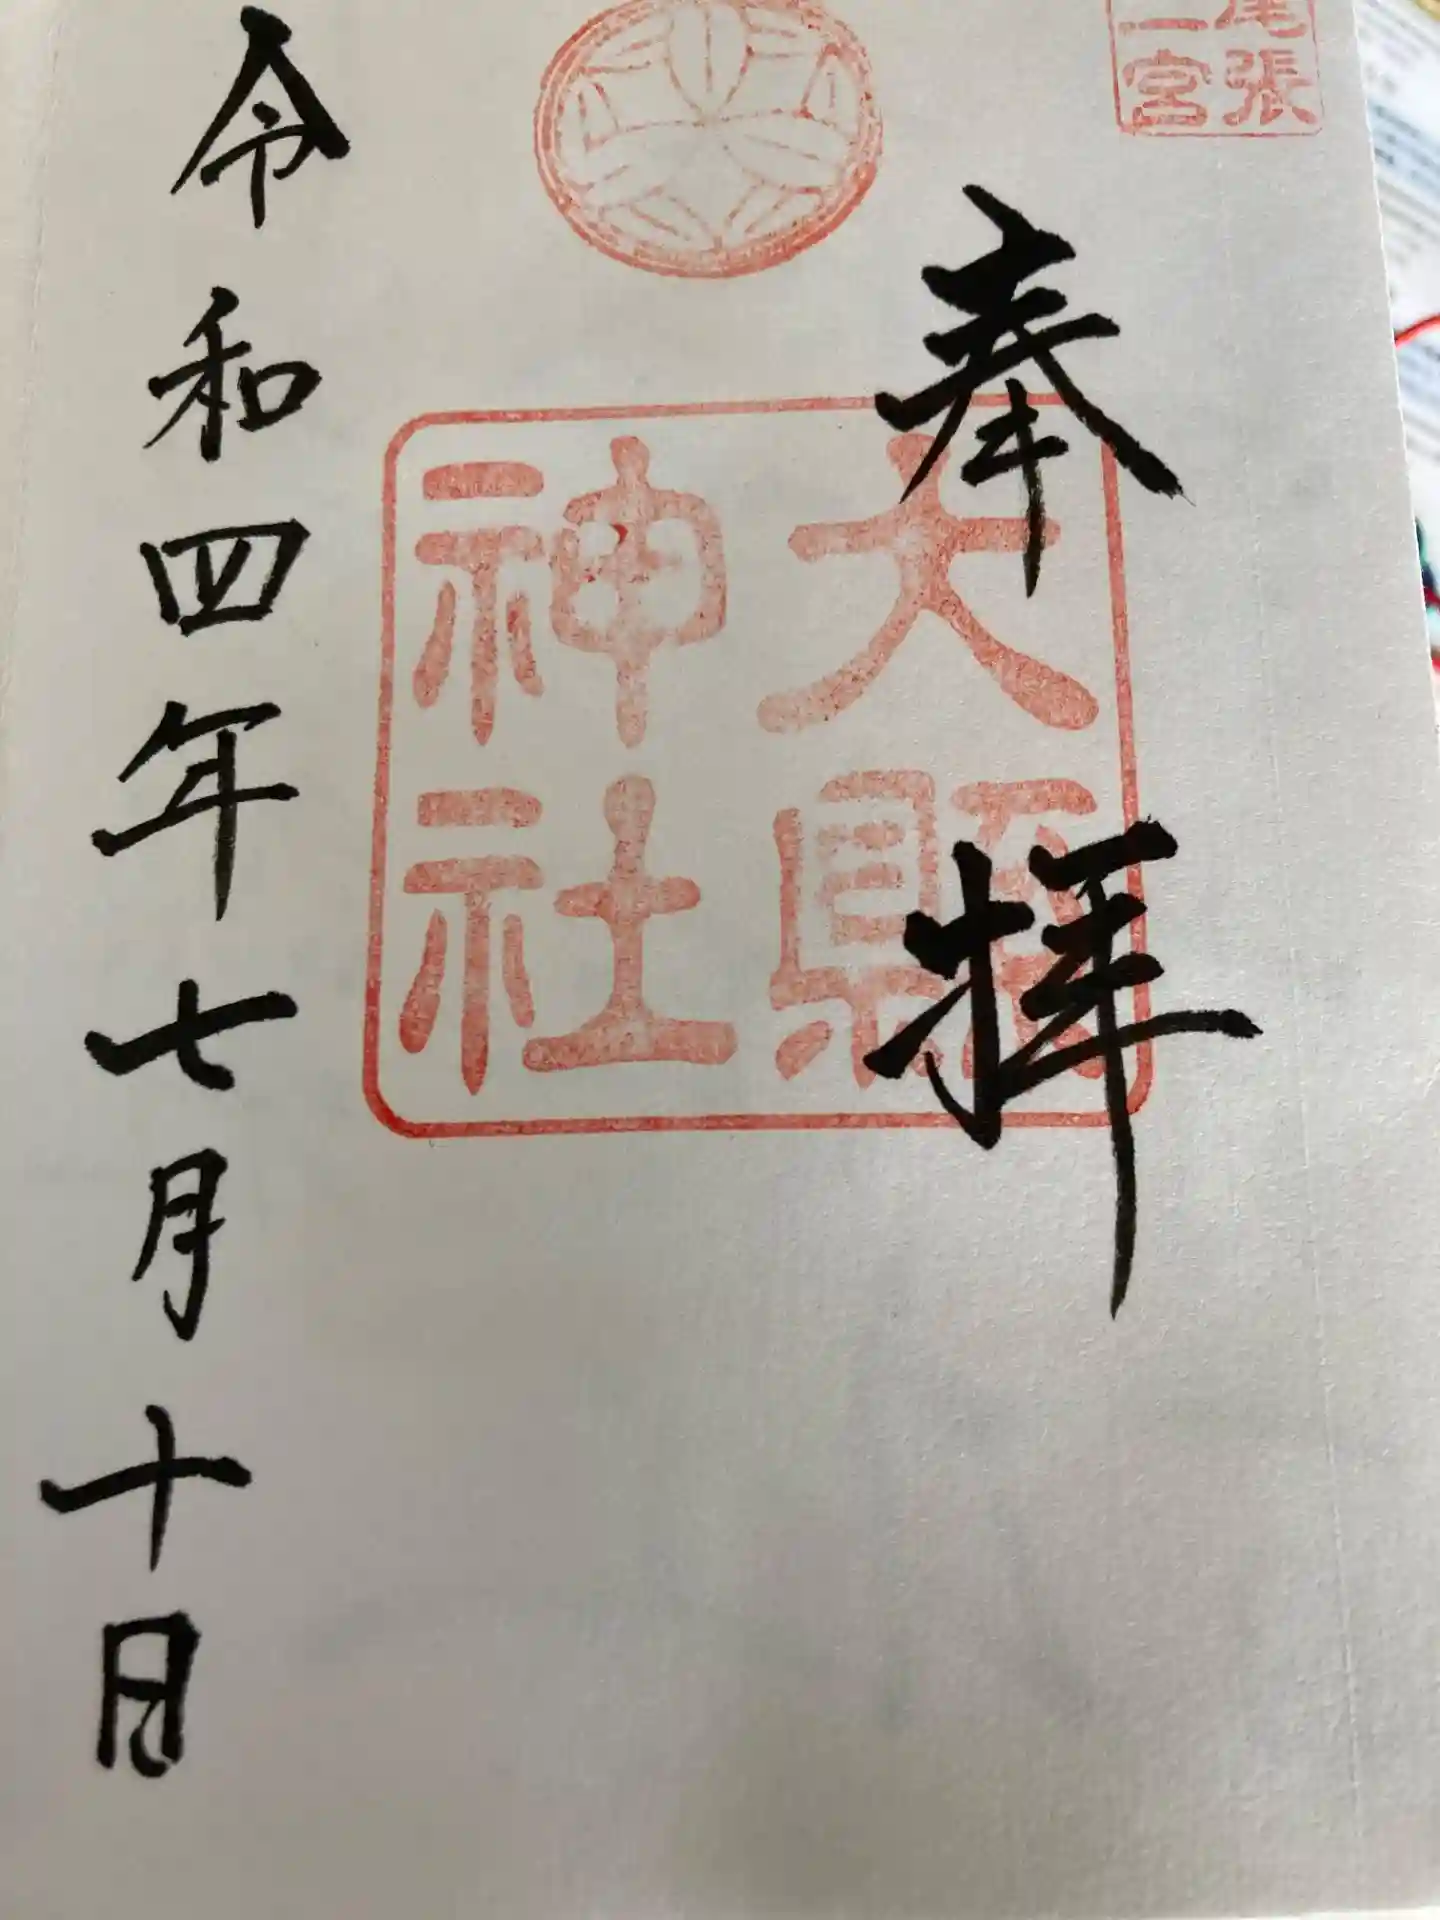 尾張
一宮
奉拝
大縣
神社
令和四年七月十日